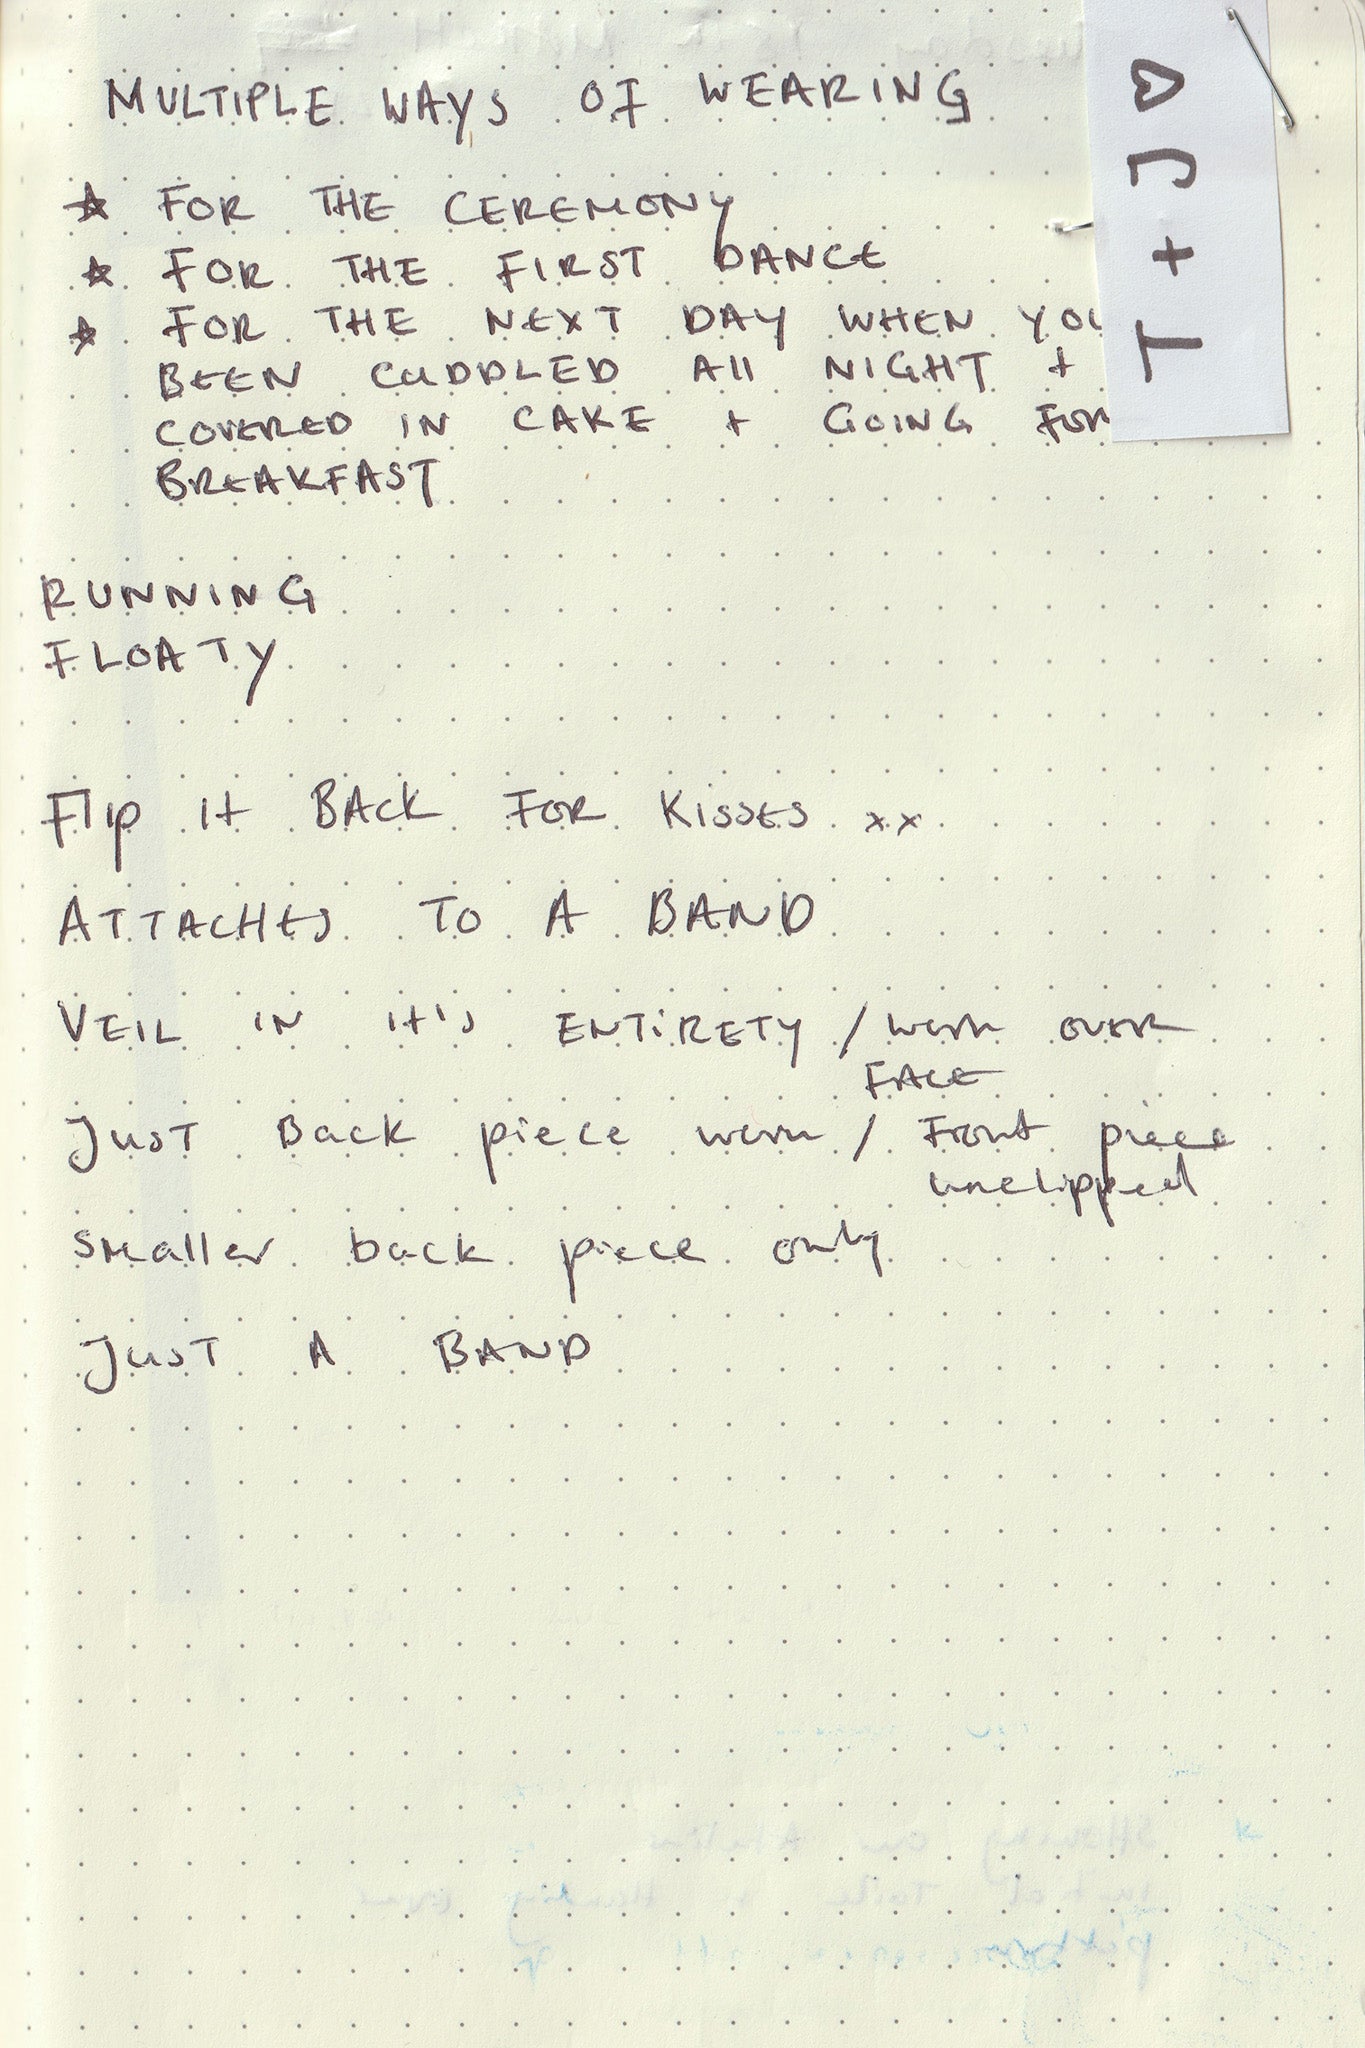 MULTIPLE WAYS OF WEARING
☆ FOR THE CEREMONY
☆ FOR THE FIRST DANCE
☆ FOR THE NEXT DAY WHEN
BEEN CUDDLED All NIGHT +
COVERED IN CAKE + GOING FOR
BREAKFAST
RUNNING
FLOATY
Flip it BACK FOR KISSES xx
ATTACHES TO A BAND
VEIL IN it's ENTIRETY / worn over
FACE
JUST Back piece worn / Front piece
unclipped
smaller back piece only
JUST A BAND
T + J ♡